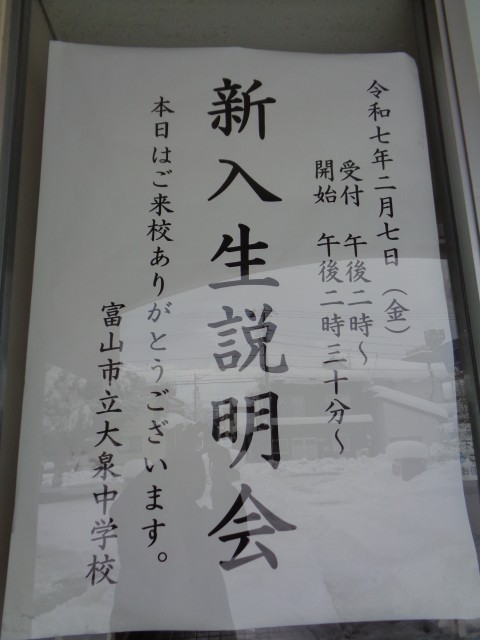 令和七年二月七日（金）
受付　午後二時～
開始　午後二時三十分～
新入生説明会
本日はご来校ありがとうございます。
富山市立大泉中学校